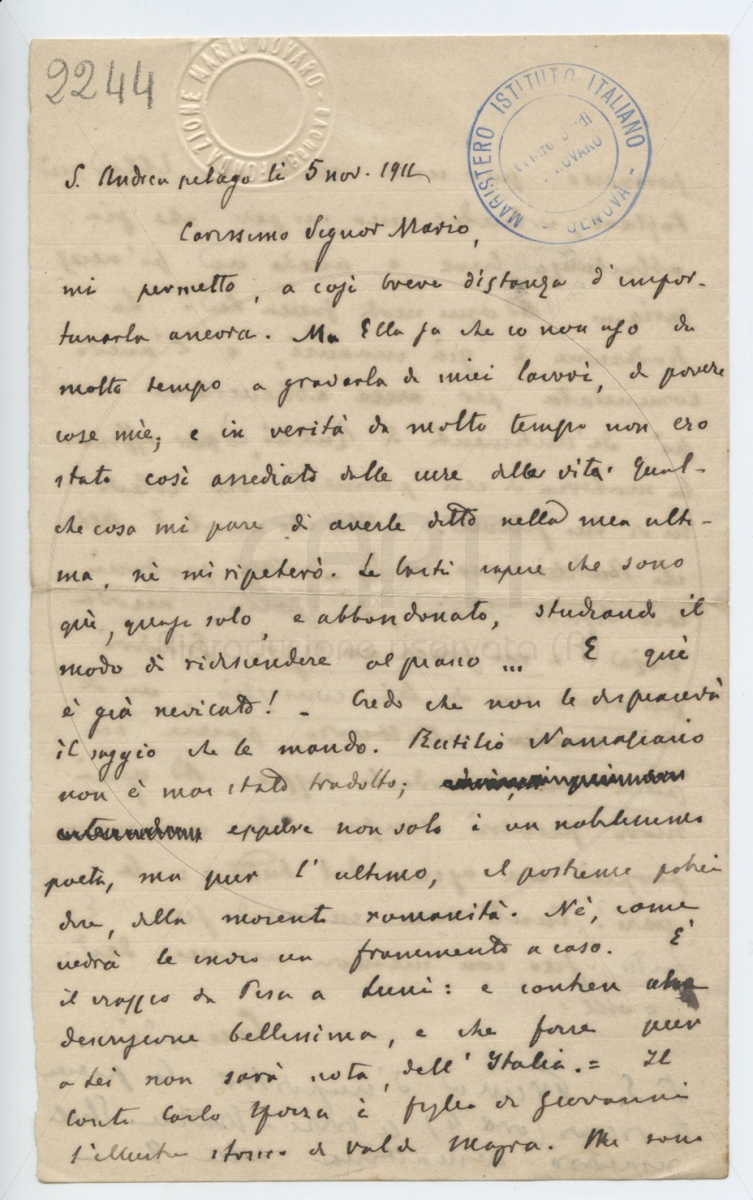 2244
FONDAZIONE MARIO NOVARO
MAGISTERO ISTITUTO ITALIANO - GENOVA -
S. Andrea pelago li 5 nov. 1911
Carissimo Signor Mario,
mi permetto, a così breve distanza d'impor-
tunarla ancora. Ma Ella sa che io non uso da
molto tempo a gravarla di miei lavori, di povere
cose mie; e in verità da molto tempo non ero
stato così assediato dalle cure della vita. Qual-
che cosa mi pare di averle detto nella mia ulti-
ma, nè mi ripeterò. Le basti sapere che sono
quì, quasi solo, e abbandonato, studiando il
modo di ridiscendere al piano ... E quì
è già nevicato! - Credo che non le dispiacerà
il saggio che le mando. Rutilio Namaziano
non è mai stato tradotto;
eppure non solo è un nobilissimo
poeta, ma pur l'ultimo, il postremo potrei
dire, della morente romanità. Nè, come
vedrà le invio un frammento a caso. È
il viaggio da Pisa a Luni: e contien
descrizione bellissima, e che forse pur
a Lei non sarà nota, dell'Italia. = Il
Conte Carlo Sforza è figlio di Giovanni
l'illustre storico di Val di Magra. Mi sono